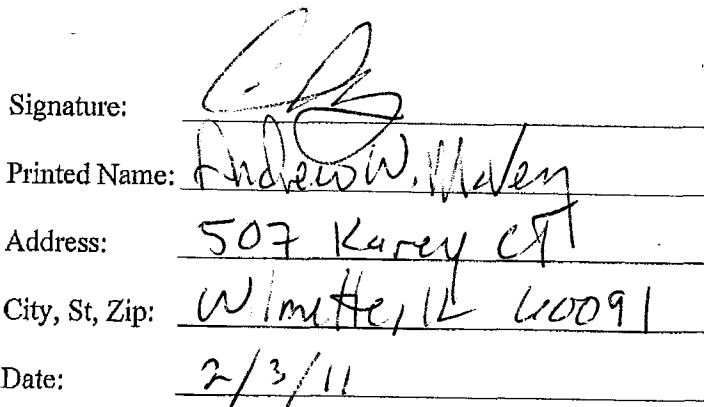 Signature:
Printed Name: Andrew W.
Address: 507 Karey CT
City, St, Zip: Wilmette, IL 60091
Date: 2/3/11